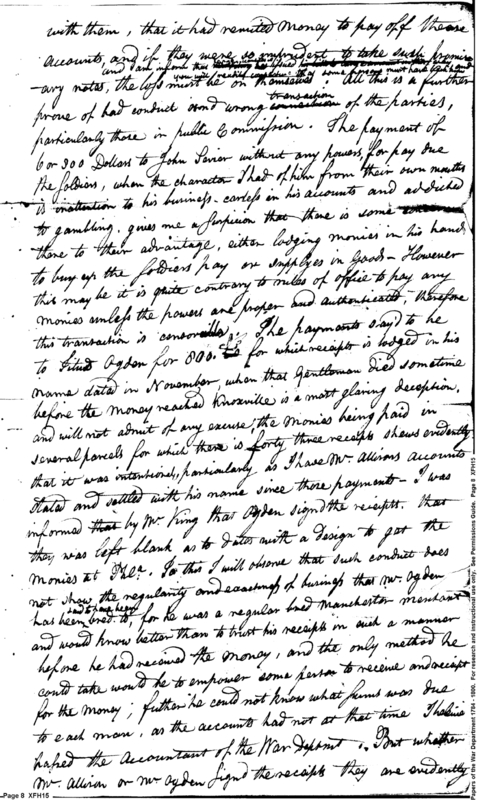 with them, that it had remitted Money to pay off these
accounts, and if they were so imprudent to take such promise
and I am informed that
ary notes, the loss must be on themselves. All this is a further
transaction
prone of had conduct and wrong of the parties,
particularly those in public Commission. The payment of
6 or 800 Dollars to John Sevier without any powers, for pay due
the soldiers, when the character I had of him from their own mouths
is inattention to his business - careless in his accounts and addicted
to gambling. gives me a suspicion that there is some
there to their advantage, either lodging monies in his hands
to buy up the soldiers pay or supplies in Goods - However
this may be it is quite contrary to rules of office to pay any
monies unless the powers are proper and authenticated, therefore
this transaction is censorable. The payments say'd to be
to Titus Ogden for 800. for which receipts is lodged in his
name dated in November, when that Gentleman died sometime
before the money reached Knoxville is a most glaring deception,
and will not admit of any excuse; the monies being paid in
several parcels for which there is forty three receipts shews evidently
that it was intentional, particularly as I have Mr. Allisons accounts
stated and settled with his name since those payments - I was
informed that by Mr. King that Ogden sign'd the receipts. that
they was left blank as to dates with a design to get the
monies at Phla. To this I will observe that such conduct does
not show the regularity and exactness of business that Mr. Ogden
has been bred to, for he was a regular bred Manchester merchant
and would know better than to trust his receipts in such a manner
before he had received the money, and the only method he
could take would be to empower some person to receive and receipt
for the money; futher he could not know what sums was due
to each man, as the accounts had not at that time
passed the Accountant of the War Depmt. But whether
Mr. Allison or Mr. Ogden sign'd the receipts they are evidently
Page 8 XFH15
Papers of the War Department 1784 - 1800. For research and instructional use only. See Permissions Guide. Page 8 XFH15